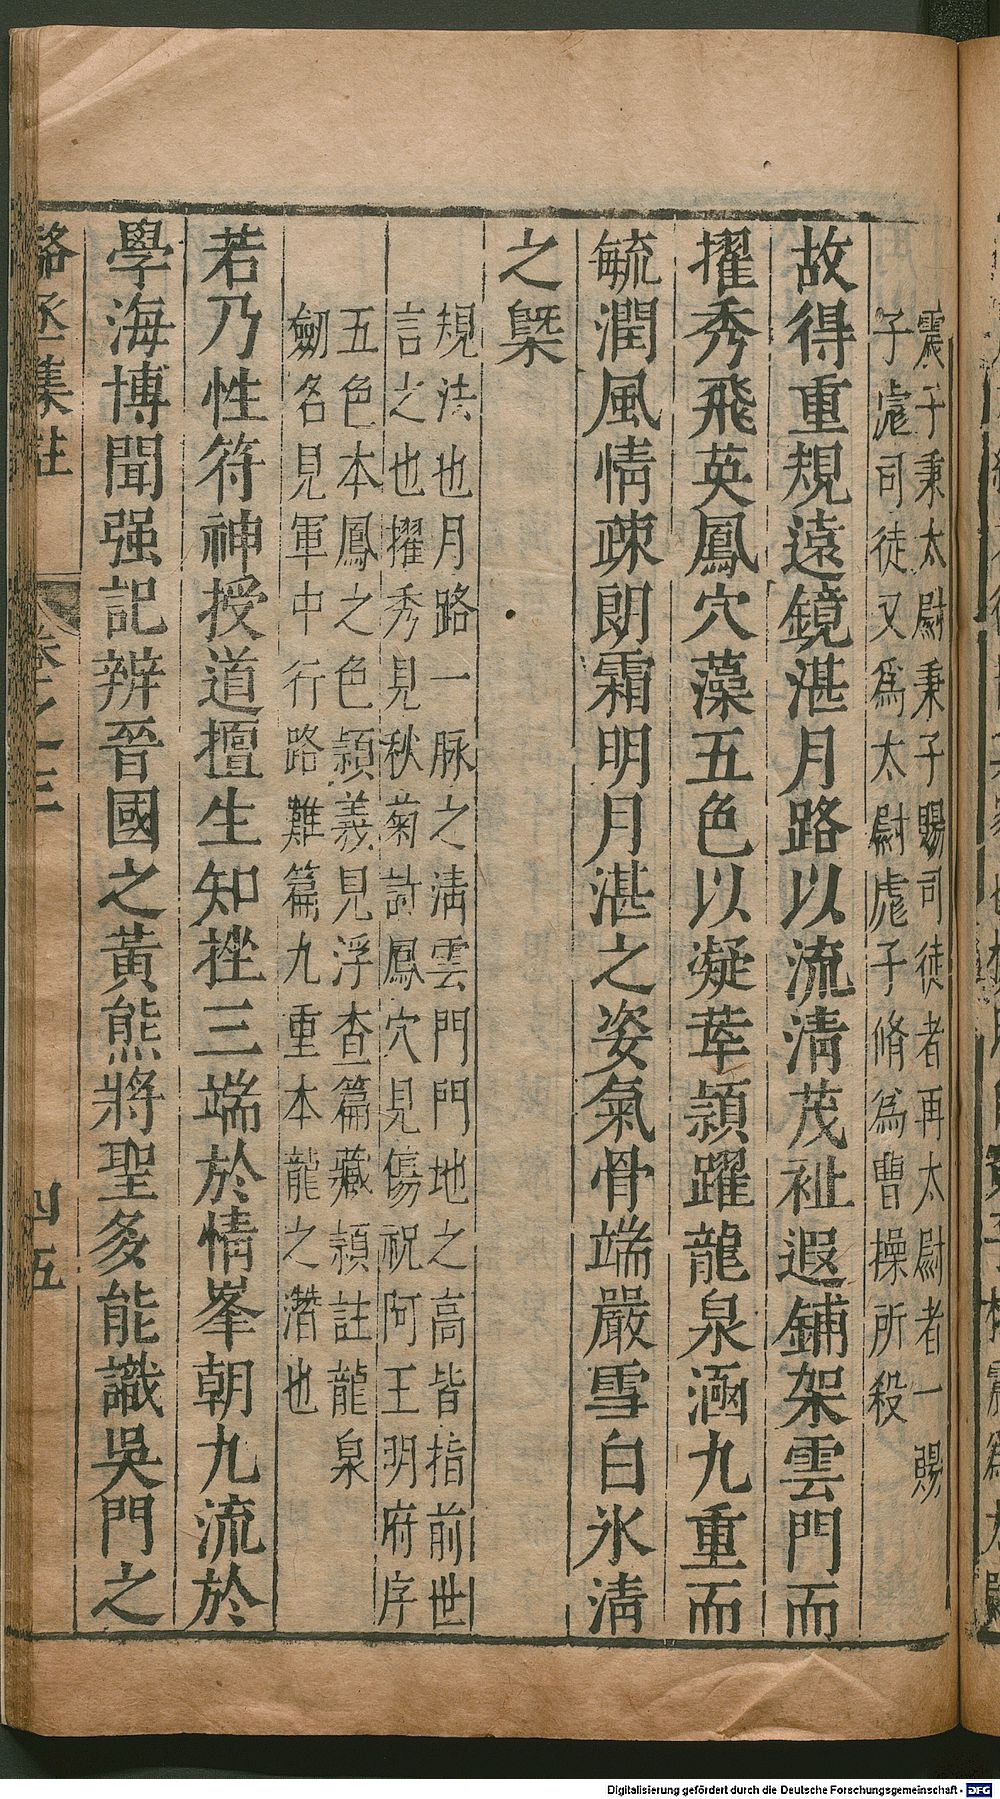 震子秉太尉秉子賜司徒者再太尉者一賜
子滮司徒又爲太尉處子脩爲曹操所殺
故得重規遠鏡湛月路以流淸茂祉遐鋪架雲門而
擢秀飛英鳳穴藻五色以凝莗穎躍龍泉涵九重而
毓潤風情疎朗霜明月湛之姿氣骨端嚴雪白氷淸
之槩
規法也月路一脉之淸雲門門地之高皆指前世
言之也擢秀見秋菊詩鳳穴見傷祝阿王明府序
五色本鳳之色穎義見浮查篇藏穎註龍泉
劒名見軍中行路難篇九重本龍之潛也
若乃性符神授道擅生知挫三端於情峯朝九流於
學海博聞强記辨晉國之黃熊將聖多能識吳門之
駱丞集註
卷之三
四五
Digitalisierung gefördert durch die Deutsche Forschungsgemeinschaft - DFG